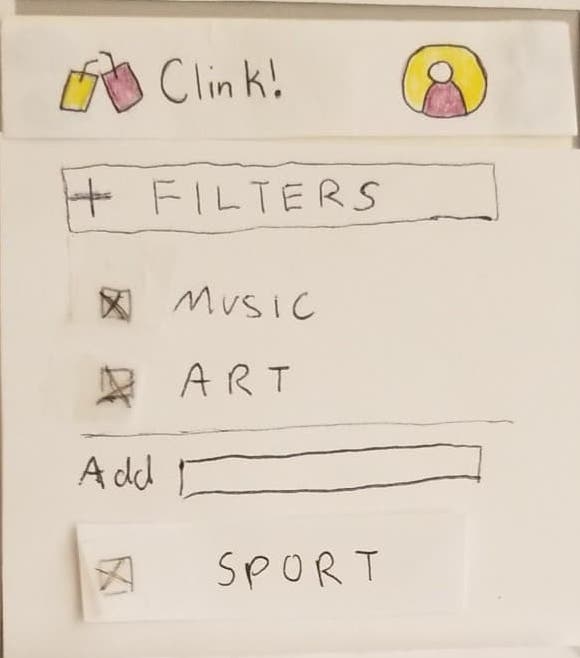 Clink!
+ FILTERS
MUSIC
ART
Add
SPORT